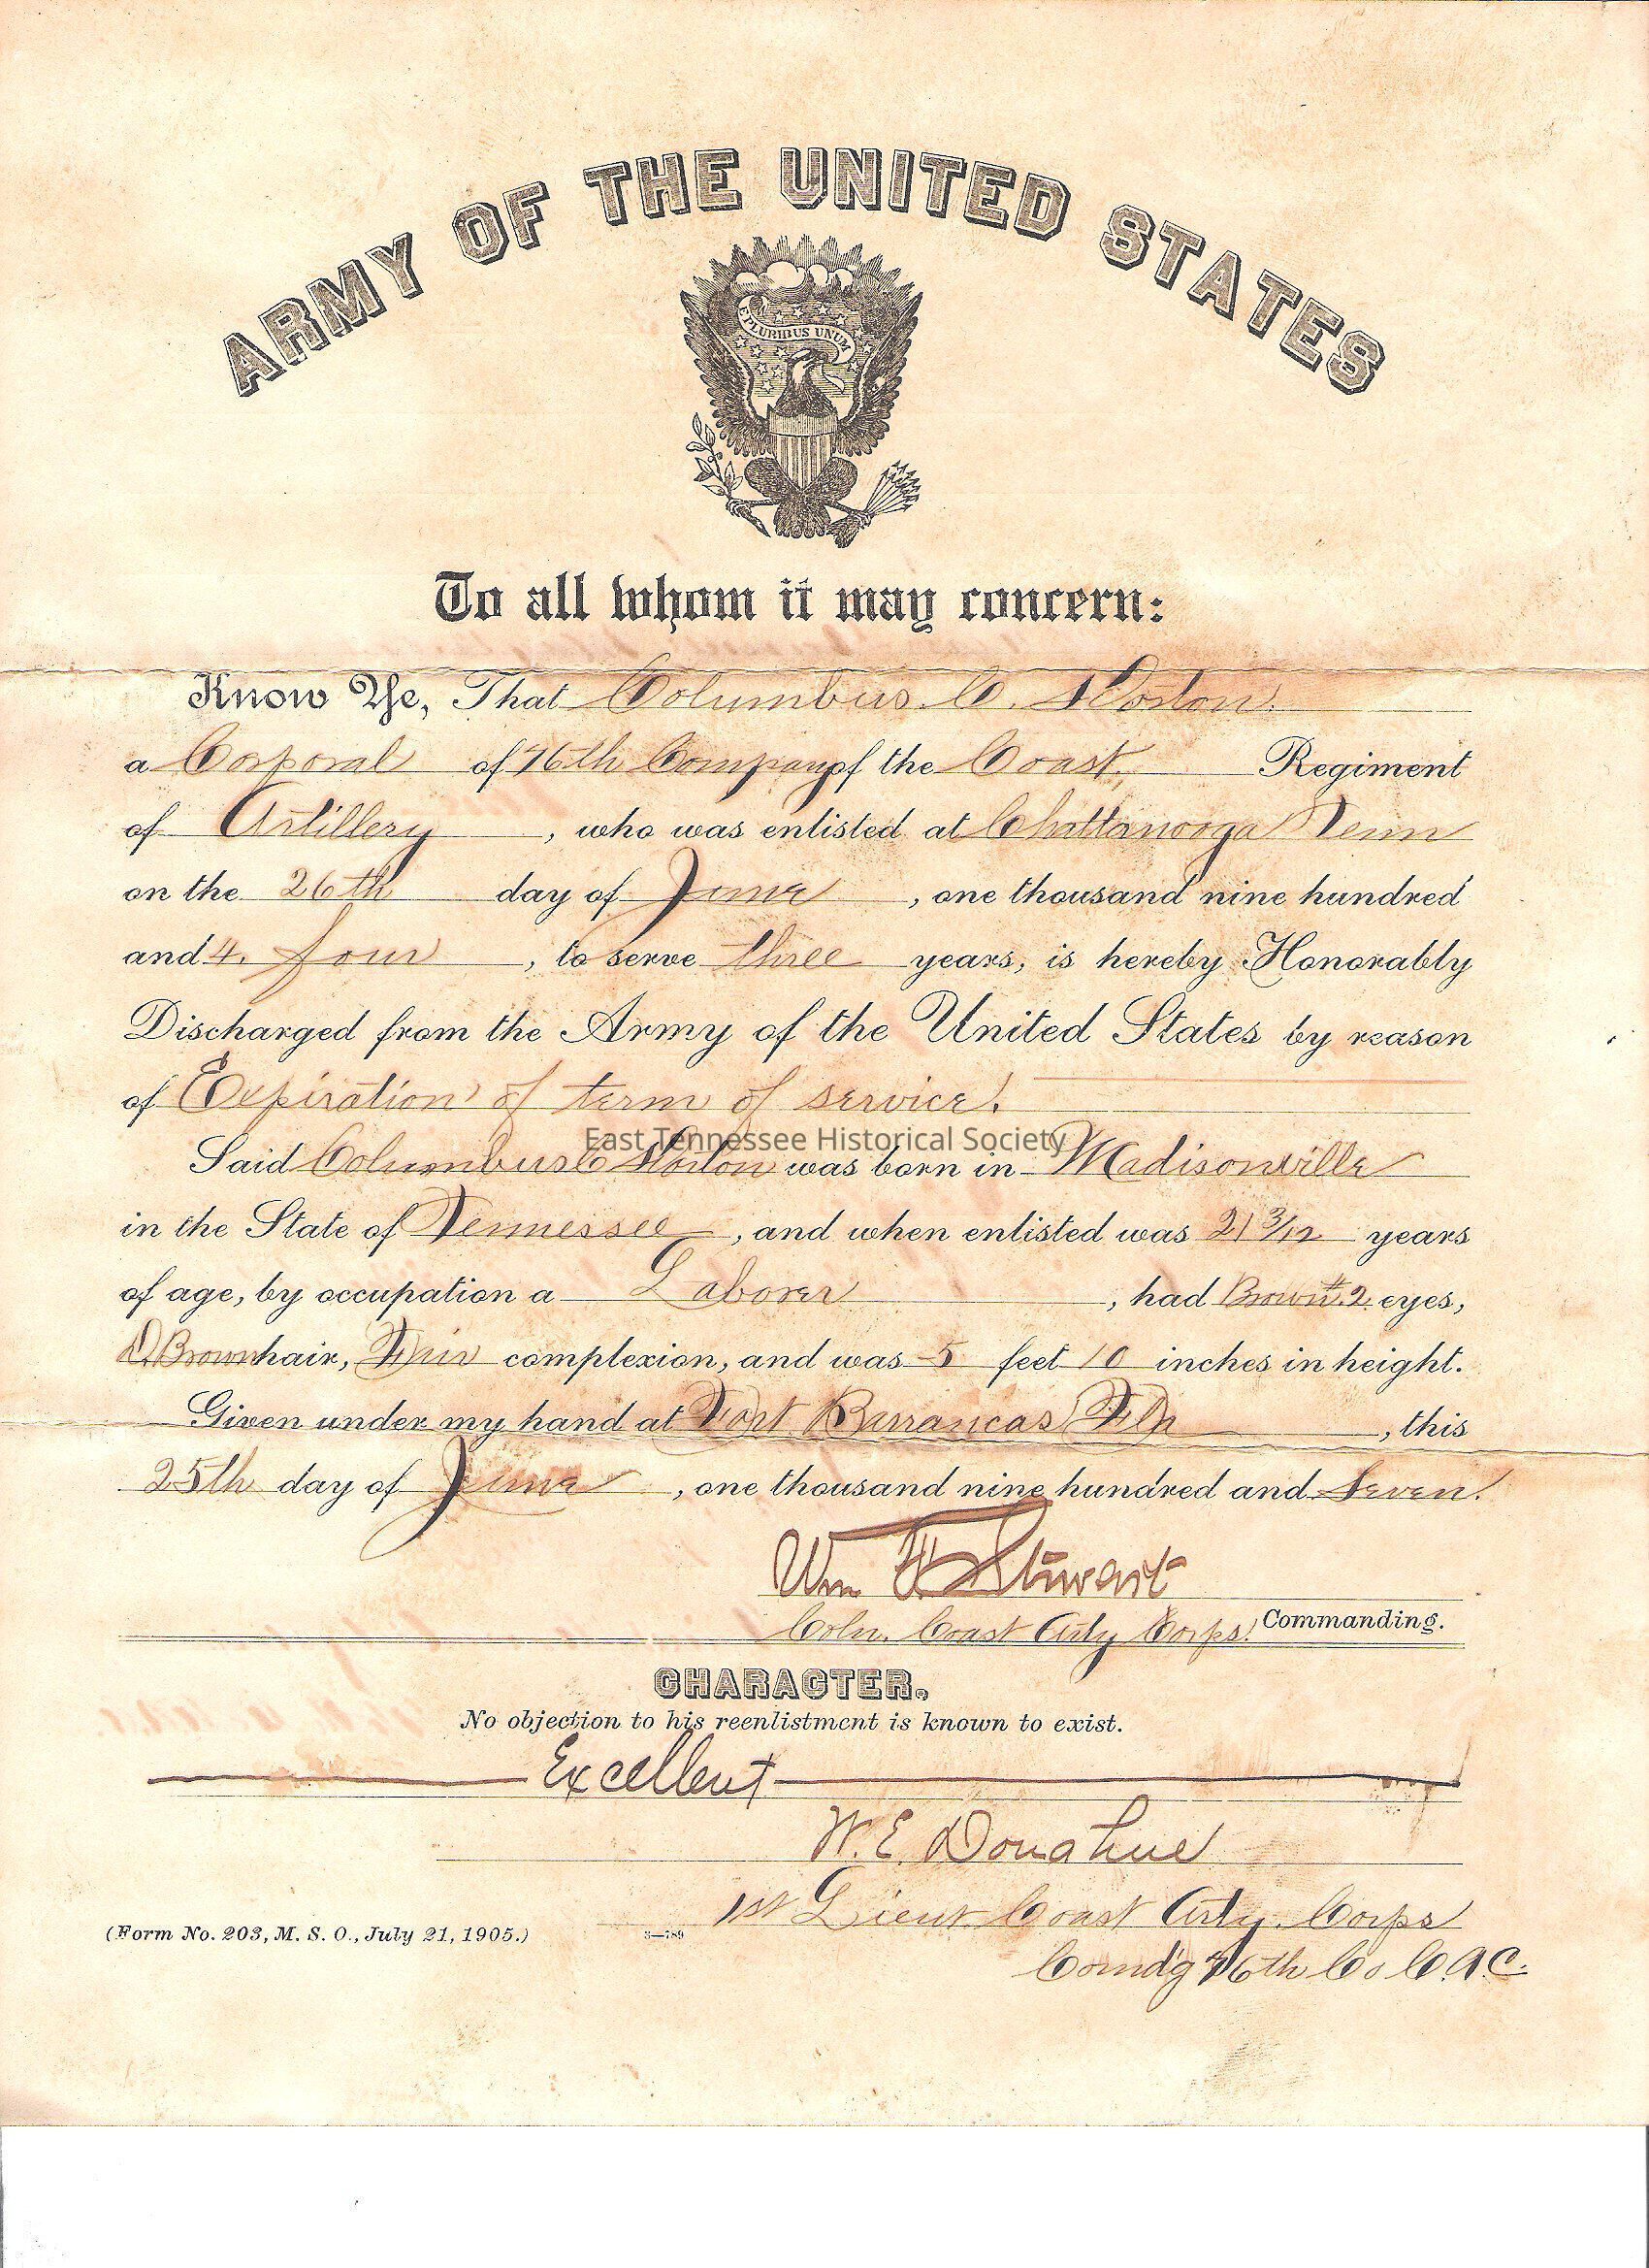 ARMY OF THE UNITED STATES
E PLURIBUS UNUM
To all whom it may concern:
Know Ye, That Columbus C.
a Corporal of 76th Company of the Coast Regiment
of Artillery, who was enlisted at Chattanooga Tenn
on the 26th day of June, one thousand nine hundred
and 4. four, to serve three years, is hereby Honorably
Discharged from the Army of the United States by reason
of Expiration of term of service.
East Tennessee Historical Society
Said Columbus C was born in Madisonville
in the State of Tennessee, and when enlisted was 21 3/12 years
of age, by occupation a Laborer, had Brown #2 eyes,
D. Brown hair, Fair complexion, and was 5 feet 10 inches in height.
Given under my hand at Fort Barrancas Fla, this
25th day of June, one thousand nine hundred and Seven.
Wm F Stewart
Coln. Coast Arty Corps. Commanding.
CHARACTER.
No objection to his reenlistment is known to exist.
Excellent
W. E. Donahue
1st Lieut Coast Arty. Corps
(Form No. 203, M. S. O., July 21, 1905.) 3—789
Comdg 76th Co C.A.C.